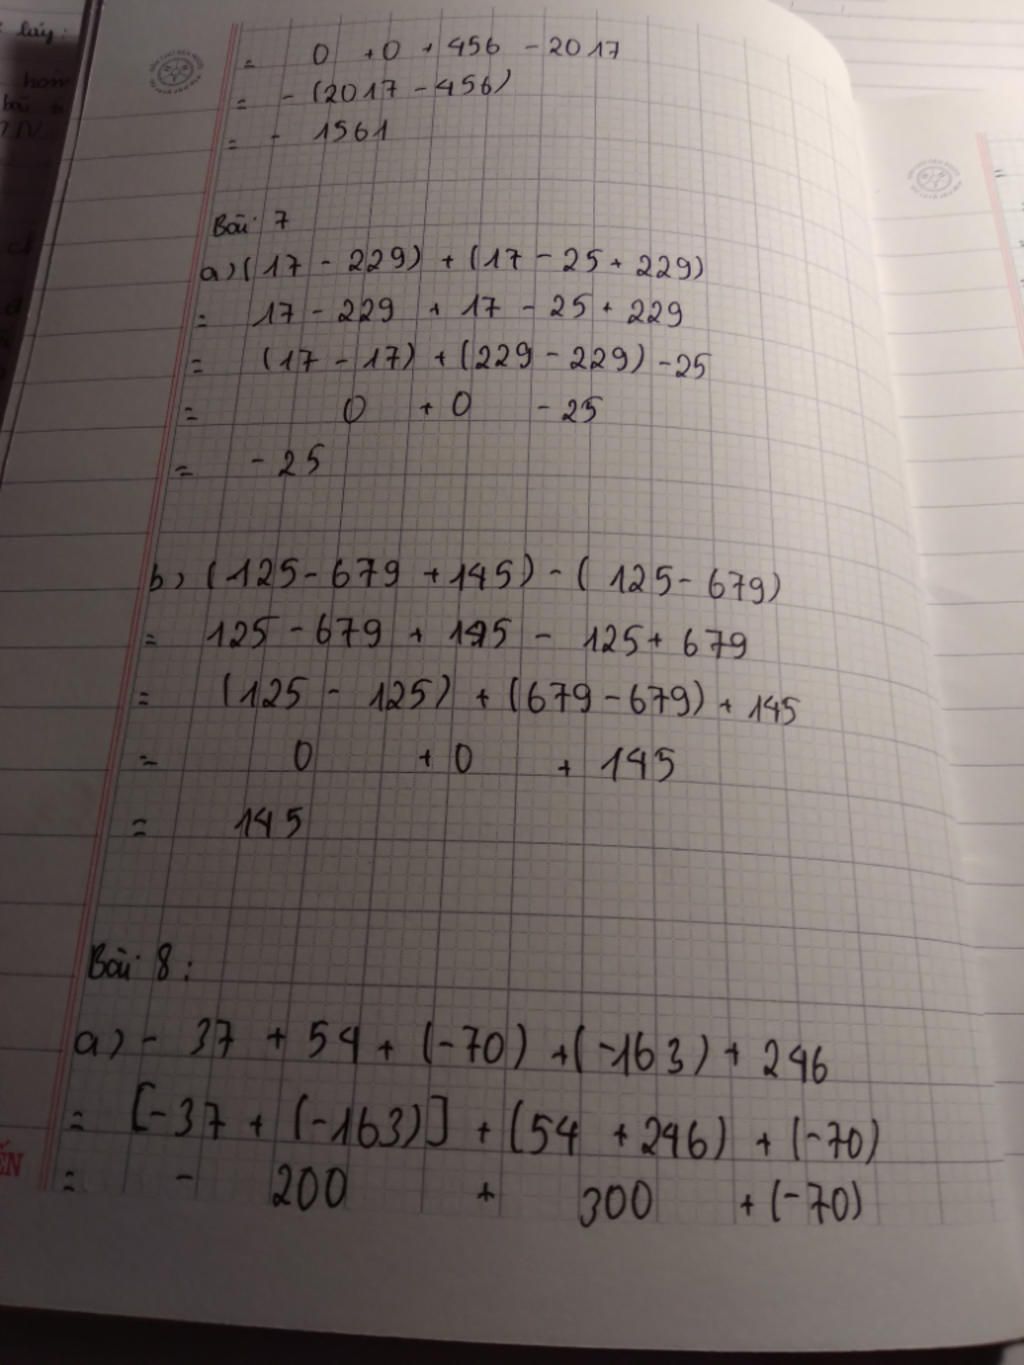 = 0 + 0 + 456 - 2017
= - (2017 - 456)
= - 1561
Bài 7
a) (17 - 229) + (17 - 25 + 229)
= 17 - 229 + 17 - 25 + 229
= (17 - 17) + (229 - 229) - 25
= 0 + 0 - 25
= - 25
b) (125 - 679 + 145) - (125 - 679)
= 125 - 679 + 145 - 125 + 679
= (125 - 125) + (679 - 679) + 145
= 0 + 0 + 145
= 145
Bài 8:
a) - 37 + 54 + (-70) + (-163) + 246
= [-37 + (-163)] + (54 + 246) + (-70)
= - 200 + 300 + (-70)